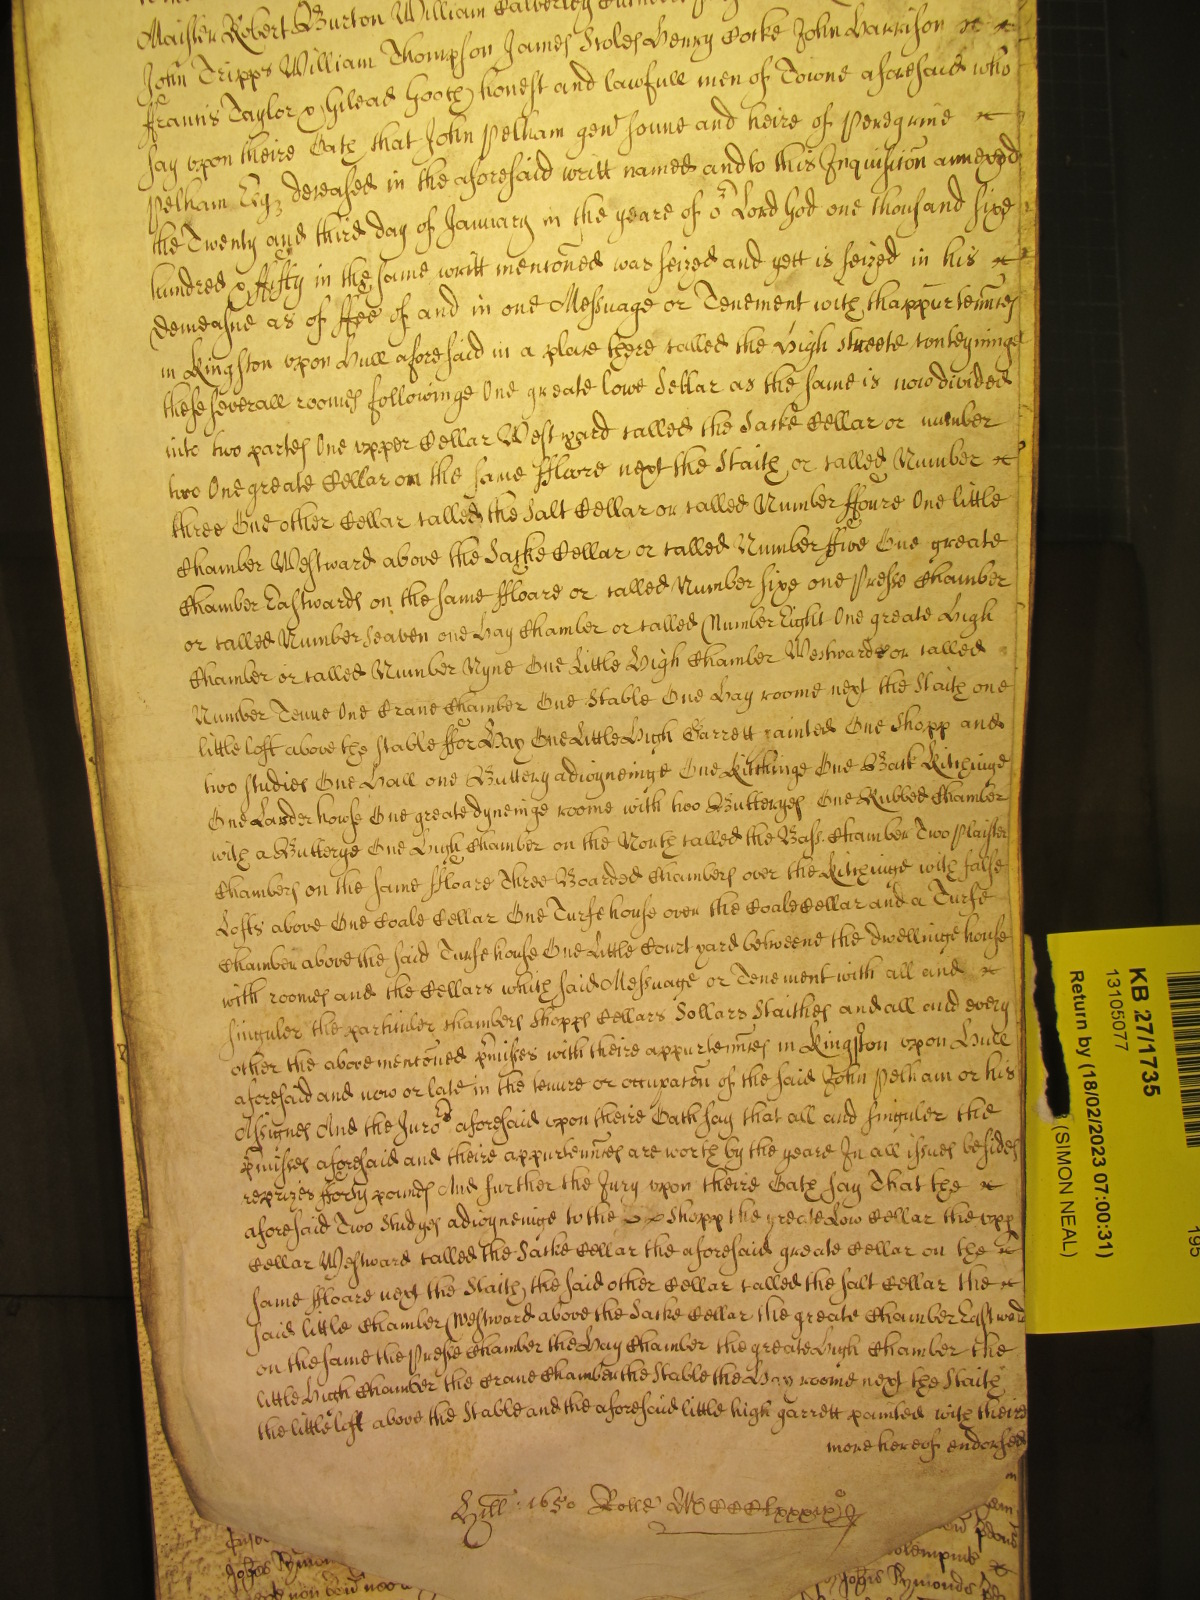 Maister Robert Burton William Calverley
John Tripps William Thompson James Stoles Henry Corke John Harrison
ffrancis Taylor & Gilead Gooch honest and lawfull men of Towne aforesaid who
say vpon theire Oath that John Pelham gent sonne and heire of Peregrine
Pelham Esqz deceased in the aforesaid writt named and to this Inquisicōn annexed
the Twenty and third day of January in the yeare of oʳ Lord God one thousand sixe
hundred & ffifty in the same writt mencōned was seized and yett is seized in his
demeasne as of ffee of and in one Messuage or Tenement with thappurtennces
in Kingston vpon Hull aforesaid in a place there called the High streete conteyninge
these severall roomes followinge One greate lowe Sellar as the same is now divided
into two partes One vpper Cellar Westward called the Sacke Cellar or number
two One greate Cellar on the same ffloare next the Staith or called Number
three One other Cellar called the Salt Cellar or called Number ffoure One little
Chamber Westward above the Sacke Cellar or called Number ffive One greate
Chamber Eastwards on the same ffloare or called Number sixe one Presse Chamber
or called Number Seaven one Hay Chamber or called Number Eight One greate High
Chamber or called Number Nyne One Little High Chamber Westwards or called
Number Tenne One Crane Chamber One Stable One Hay roome next the Staith one
little loft above the stable ffor Hay One Little High Garrett One Shopp and
two studies One Hall one Buttery adioyneinge One Kitchinge One Back Kitchinge
One Larder howse One greate dyneinge roome with two Butteryes One Rubbed Chamber
with a Butterye One High Chamber on the North called the Bass Chamber Two Plaister
Chambers on the same ffloare Three Boarded Chambers over the Kitchinge with false
Lofts above One Coale Cellar One Turfe house over the Coale Cellar and a Turfe
Chamber above the said Turfe house One Little Court yard betweene the dwellinge house
with roomes and the Cellars which said Messuage or Tenement with all and
singuler the particuler chambers Shopps Cellars Sollars Staithes and all and every
other the above mencōned p̄misses with theire appurtennces in Kingston vpon Hull
aforesaid and now or late in the tenure or occupacōn of the said John Pelham or his
Assignes And the Juroʳˢ aforesaid vpon theire Oath say that all and singuler the
p̄misses aforesaid and theire appurtennces are worth by the yeare In all issues besides
reprizes fforty pounds And further the Jury vpon theire Oath say That the
aforesaid Two Studyes adioyneinge to the Shopp the greate Low Cellar the vpp
Cellar Westward called the Sacke Cellar the aforesaid greate Cellar on the
same ffloare next the Staith the said other Cellar called the salt Cellar the
said little Chamber Westward above the Sacke Cellar the greate Chamber Eastward
on the same the Presse Chamber the Hay Chamber the greate High Chamber the
little High Chamber the Crane Chamber the Stable the Hay roome next the Staith
the little loft above the Stable and the aforesaid little high garrett painted with theire
more hereof endorsed
Hill 1650 Rolle
KB 27/1735
13105077
Return by (18/02/2023 07:00:31)
(SIMON NEAL)
195